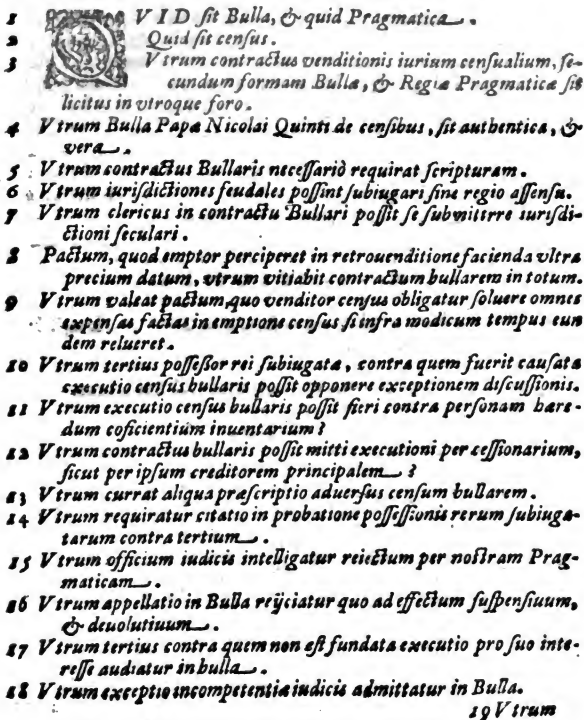 1 QVID ſit Bulla, & quid Pragmatica.
2 Quid ſit cenſus.
3 Vtrum contractus venditionis iurium cenſualium, ſe-
cundum formam Bullæ, & Regiæ Pragmaticæ ſit
licitus in vtroque foro.
4 Vtrum Bulla Papæ Nicolai Quinti de cenſibus, ſit authentica, &
vera.
5 Vtrum contractus Bullaris neceſſariò requirat ſcripturam.
6 Vtrum iuriſdictiones feudales poſſint ſubiugari ſine regio aſſenſu.
7 Vtrum clericus in contractu Bullari poſſit ſe ſubmittrre iuriſdi-
ctioni ſeculari.
8 Pactum, quod emptor perciperet in retrouenditione facienda vltra
precium datum, vtrum vitiabit contractum bullarem in totum.
9 Vtrum valeat pactum, quo venditor cenſus obligatur ſoluere omnes
expenſas factas in emptione cenſus ſi infra modicum tempus eun
dem relueret.
10 Vtrum tertius poſſeſſor rei ſubiugatæ, contra quem fuerit cauſata
executio cenſus bullaris poſſit opponere exceptionem diſcuſſionis.
11 Vtrum executio cenſus bullaris poſſit fieri contra perſonam hære-
dum coficientium inuentarium?
12 Vtrum contractus bullaris poſſit mitti executioni per ceſſionarium,
ſicut per ipſum creditorem principalem?
13 Vtrum currat aliqua præſcriptio aduerſus cenſum bullarem.
14 Vtrum requiratur citatio in probatione poſſeſſionis rerum ſubiuga-
tarum contra tertium.
15 Vtrum officium iudicis intelligatur reiectum per noſtram Prag-
maticam.
16 Vtrum appellatio in Bulla reijciatur quo ad effectum ſuſpenſiuum,
& deuolutiuum.
17 Vtrum tertius contra quem non eſt fundata executio pro ſuo inte-
reſſe audiatur in bulla.
18 Vtrum exceptio incompetentiæ iudicis admittatur in Bulla.
19 Vtrum